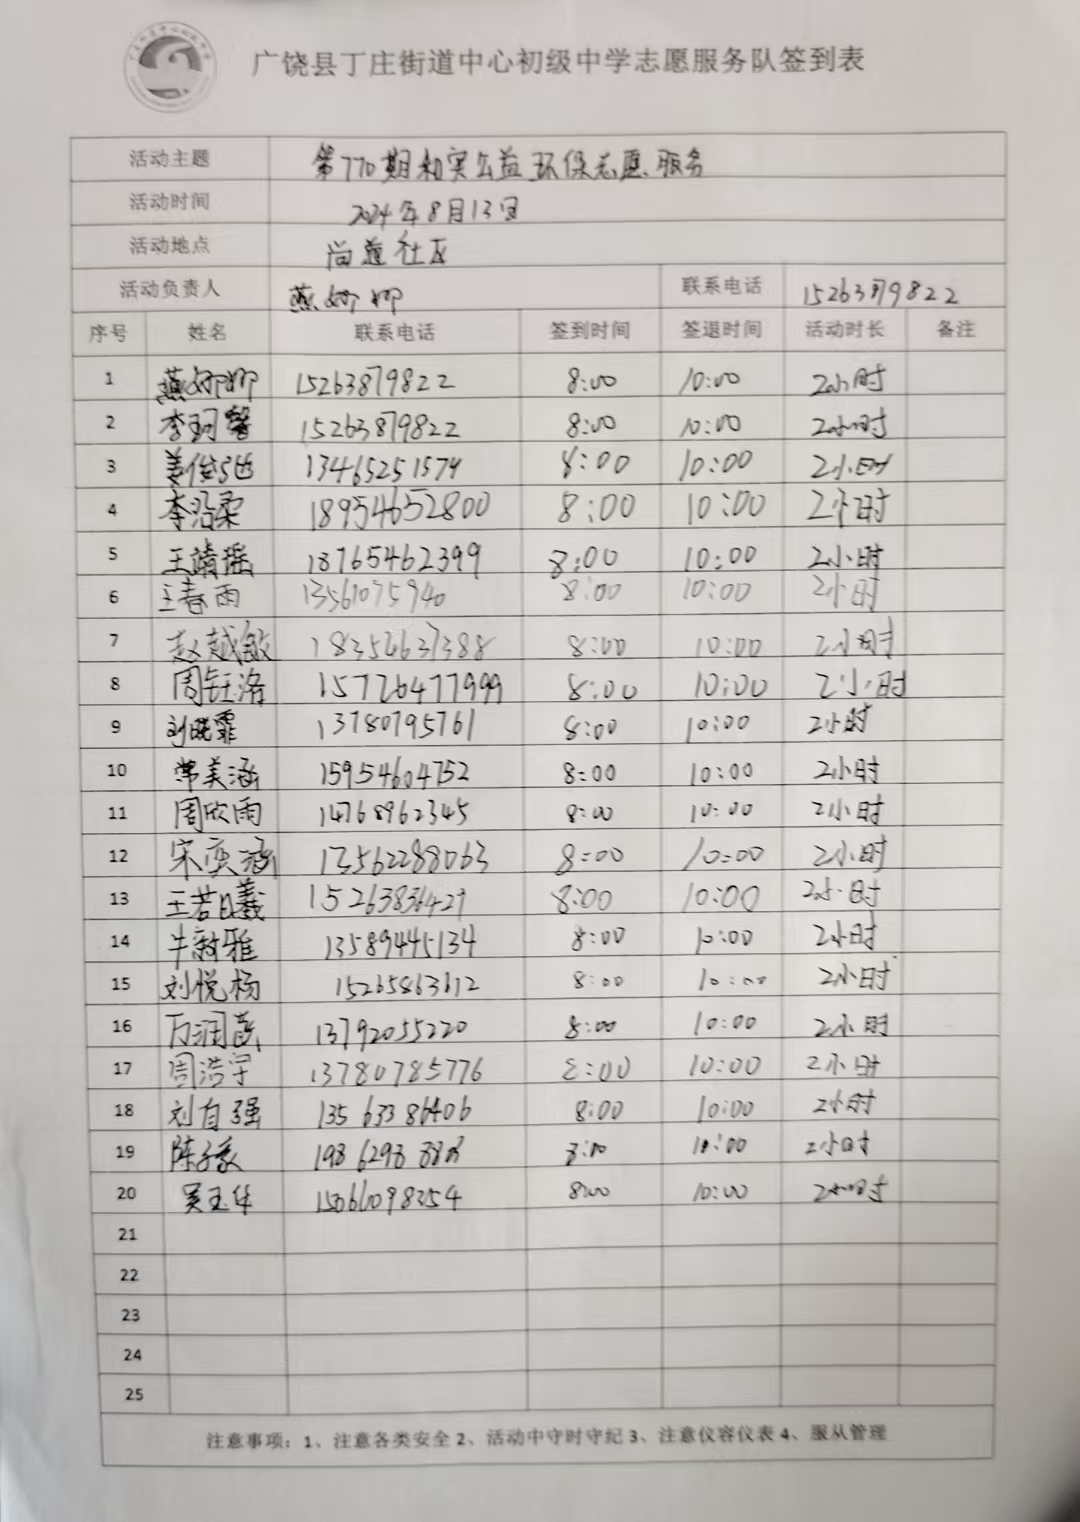 广饶县丁庄街道中心初级中学志愿服务队签到表
活动主题 第770期和实公益环保志愿服务
活动时间 2024年8月13日
活动地点 尚道社区
活动负责人 燕娜娜 联系电话 15263879822
序号 姓名 联系电话 签到时间 签退时间 活动时长 备注
1 燕娜娜 15263879822 8:00 10:00 2小时
2 李珂馨 15263879822 8:00 10:00 2小时
3 姜俊弛 13465251574 8:00 10:00 2小时
4 李浴柔 18954652800 8:00 10:00 2小时
5 王靖瑶 18765462399 8:00 10:00 2小时
6 王春雨 13561075940 8:00 10:00 2小时
7 赵越敏 18354637388 8:00 10:00 2小时
8 周钰洛 15726477999 8:00 10:00 2小时
9 刘晓霏 13780795761 8:00 10:00 2小时
10 常美涵 15954604752 8:00 10:00 2小时
11 周欣雨 14768962345 8:00 10:00 2小时
12 宋奕涵 13562288063 8:00 10:00 2小时
13 王若曦 15263836429 8:00 10:00 2小时
14 牛新雅 13589445134 8:00 10:00 2小时
15 刘悦杨 15265863612 8:00 10:00 2小时
16 万润 13792055220 8:00 10:00 2小时
17 周浩宇 13780785776 8:00 10:00 2小时
18 刘自强 13563386406 8:00 10:00 2小时
19 陈子豪 8:00 10:00 2小时
20 吴玉华 15066098254 8:00 10:00 2小时
21
22
23
24
25
注意事项：1、注意各类安全2、活动中守时守纪3、注意仪容仪表4、服从管理